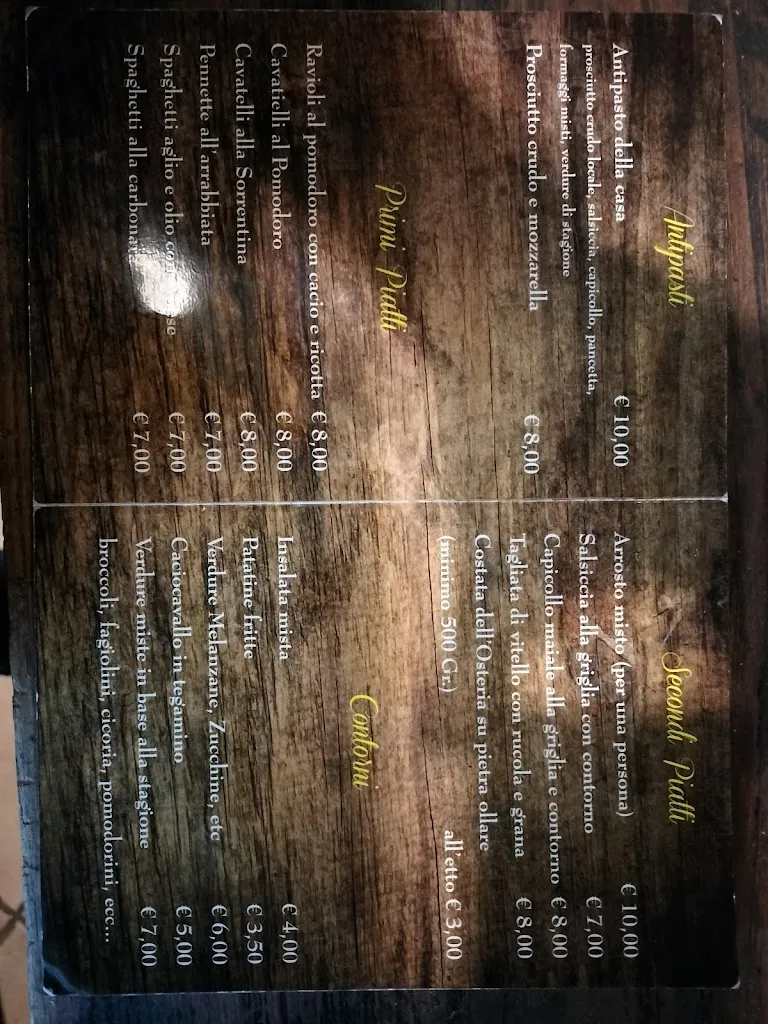 Antipasti
Antipasto della casa € 10,00
prosciutto crudo locale, salsiccia, capicollo, pancetta,
formaggi misti, verdure di stagione
Prosciutto crudo e mozzarella € 8,00
Primi Piatti
Ravioli al pomodoro con cacio e ricotta € 8,00
Cavatielli al Pomodoro € 8,00
Cavatelli alla Sorrentina € 8,00
Pennette all'arrabbiata € 7,00
Spaghetti aglio e olio € 7,00
Spaghetti alla € 7,00
Secondi Piatti
Arrosto misto (per una persona) € 10,00
Salsiccia alla griglia con contorno € 7,00
Capicollo maiale alla griglia e contorno € 8,00
Tagliata di vitello con rucola e grana € 8,00
Costata dell'Osteria su pietra ollare
(minimo 500 Gr.) all'etto € 3,00
Contorni
Insalata mista € 4,00
Patatine fritte € 3,50
Verdure Melanzane, Zucchine, etc € 6,00
Caciocavallo in tegamino € 5,00
Verdure miste in base alla stagione € 7,00
broccoli, fagiolini, cicoria, pomodorini, ecc...